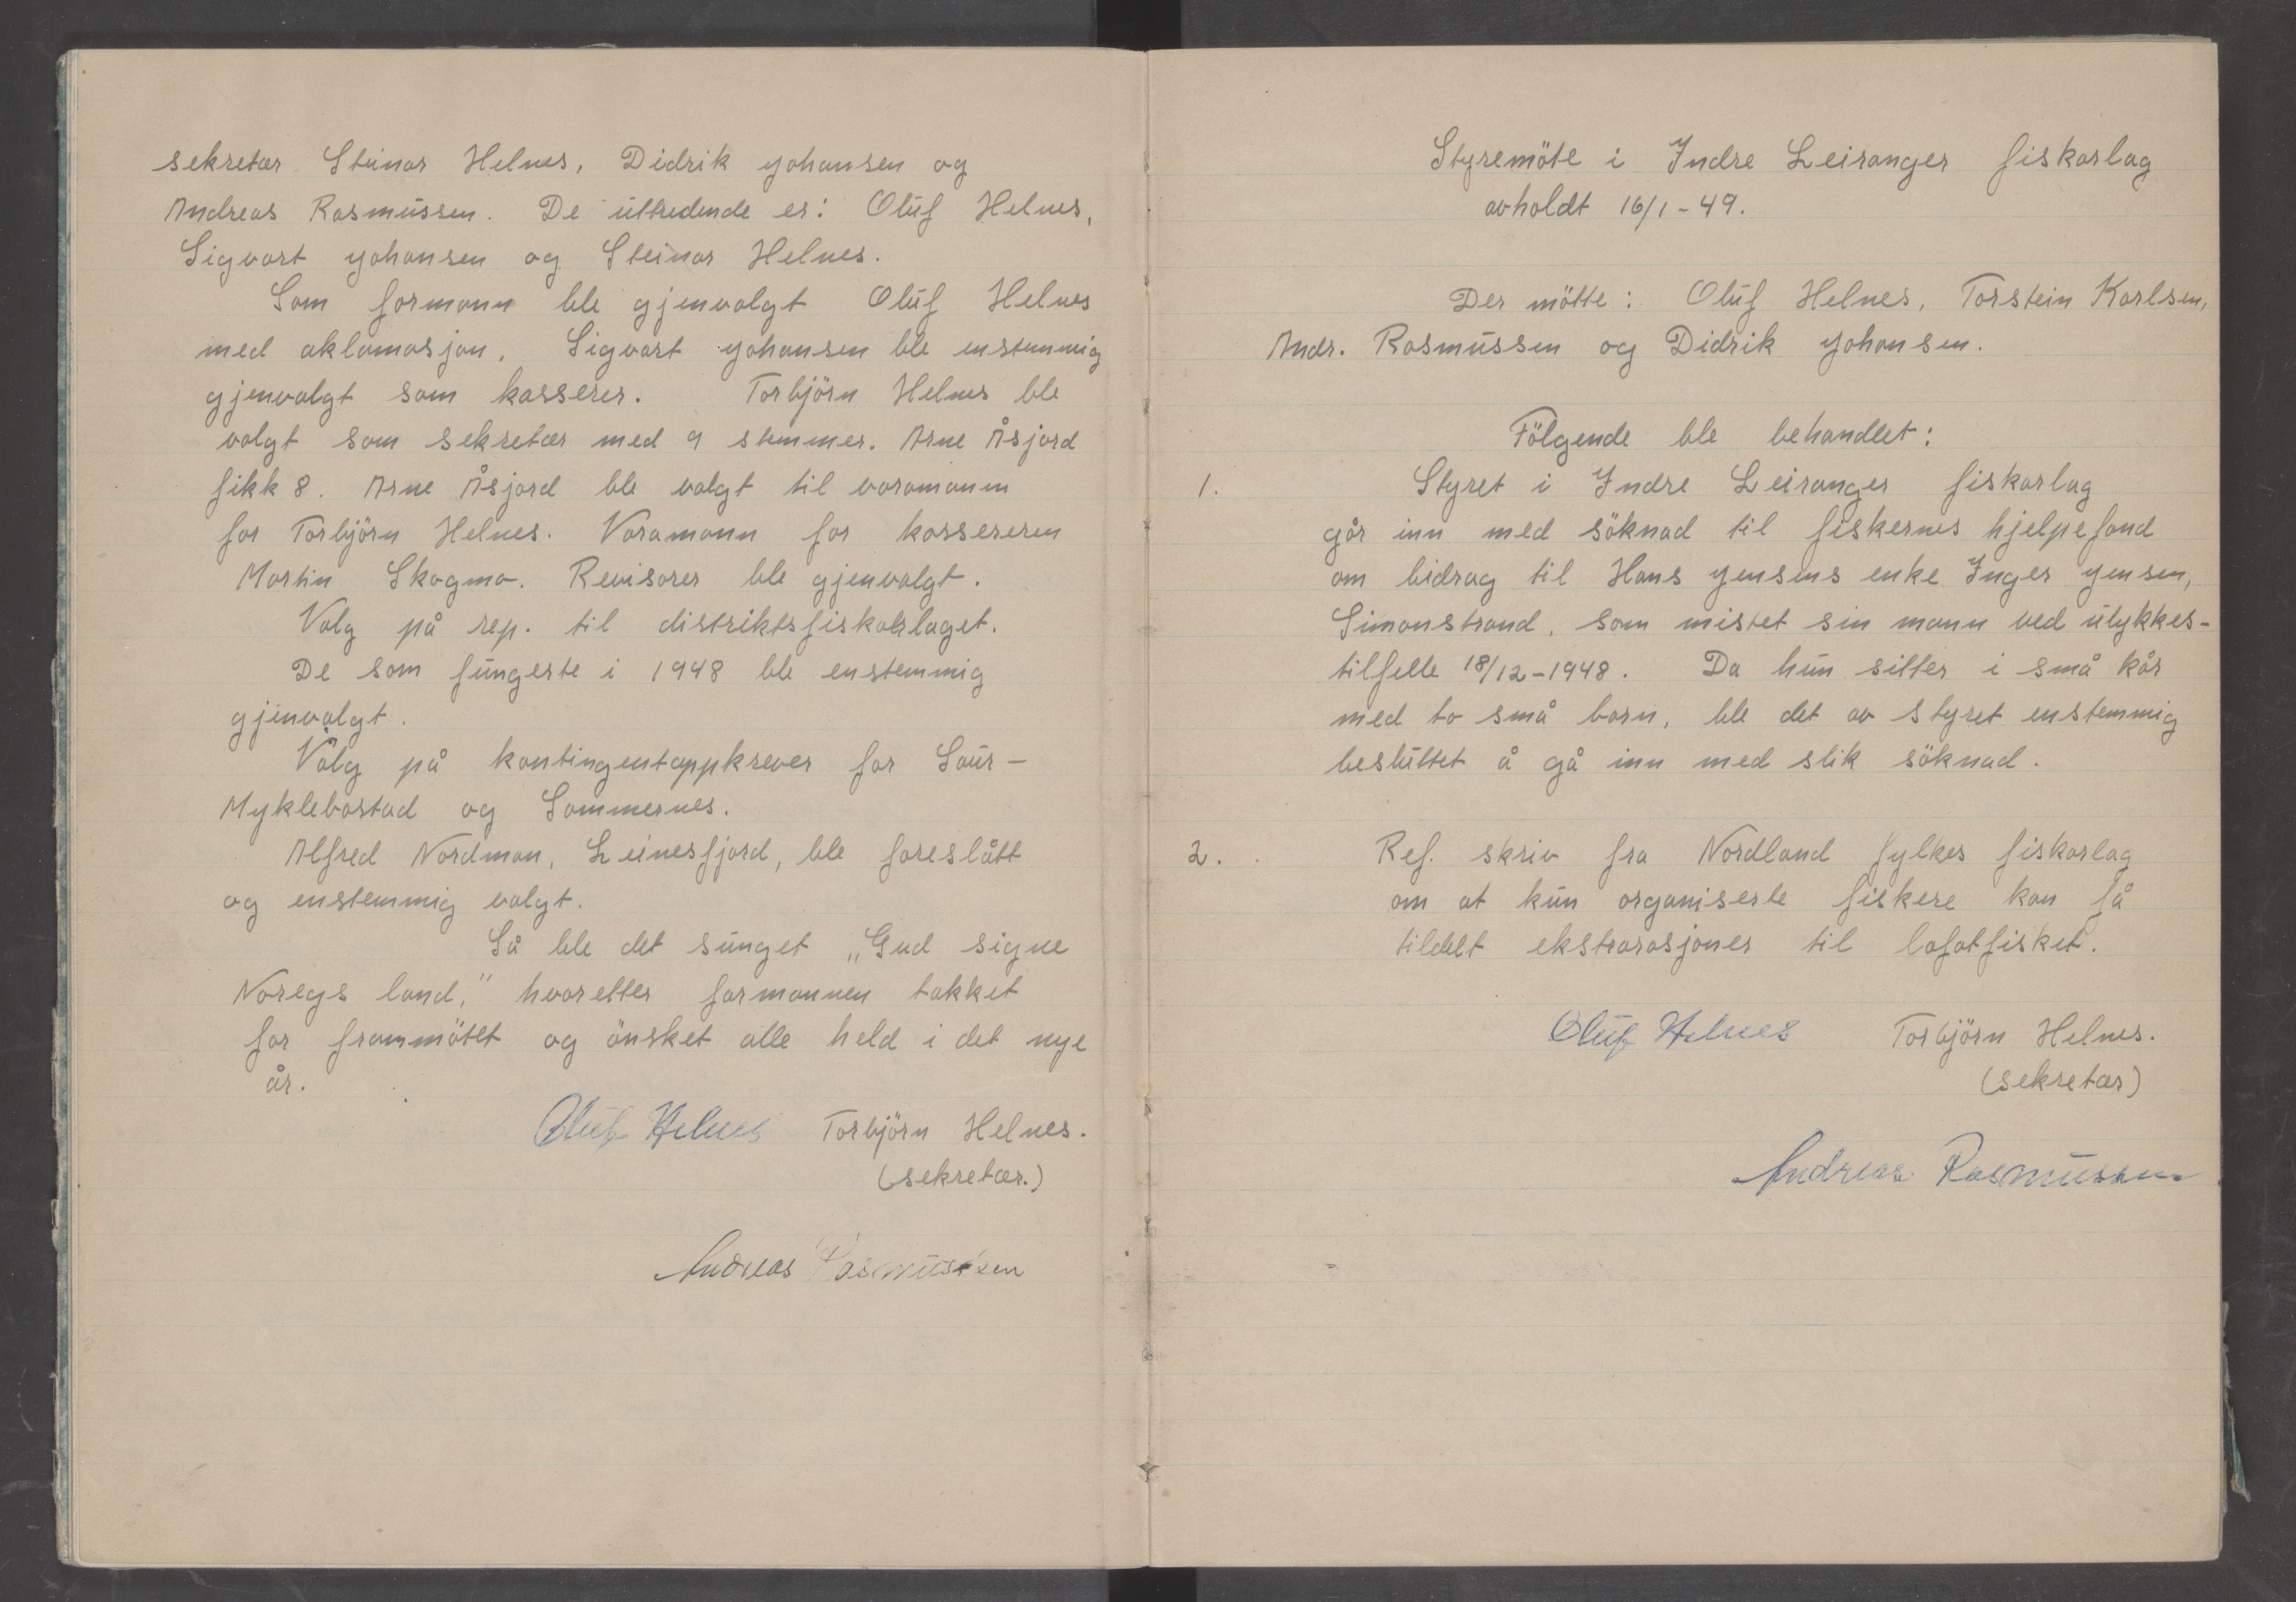 sekretær Steinar Helnes, Didrik Johansen og
Andreas Rasmussen. De uttredende er: Oluf Helnes,
Sigvart Johansen og Steinar Helnes.
Som formann ble gjenvalgt Oluf Helnes
med aklamasjon. Sigvart Johansen ble enstemmig
gjenvalgt som kasserer. Torbjörn Helnes ble
valgt som sekretær med 9 stemmer. Arne Åsjord
fikk 8. Arne Åsjord ble valgt til varamann
for Torbjörn Helnes. Varamann for kassereren
Martin Skogmo. Revisorer ble gjenvalgt.
Valg på rep. til distriktsfiskarlaget.
De som fungerte i 1948 ble enstemmig
gjenvalgt.
Valg på kontingentoppkrever for Saur-
Myklebostad og Sommernes.
Alfred Nordman, Leinesfjord, ble foreslått
og enstemmig valgt.
Så ble det sunget „Gud signe
Noregs land," hvoretter formannen takket
for frammötet og önsket alle held i det nye
år.
Oluf Helnes Torbjörn Helnes.
(sekretær.)
Andreas Rasmussen
Styremöte i Indre Leiranger fiskarlag
avholdt 16/1-49.
Der mötte: Oluf Helnes, Torstein Karlsen,
Andr. Rasmussen og Didrik Johansen.
Fölgende ble behandlet:
1. Styret i Indre Leiranger fiskarlag
går inn med söknad til fiskernes hjelpefond
om bidrag til Hans Jensens enke Inger Jensen,
Simonstrand, som mistet sin mann ved ulykkes-
tilfelle 18/12-1948. Da hun sitter i små kår
med to små barn, ble det av styret enstemmig
besluttet å gå inn med slik söknad.
2. Ref. skriv fra Nordland fylkes fiskarlag
om at kun organiserte fiskere kan få
tildelt ekstrarasjoner til lofotfisket.
Oluf Helnes Torbjörn Helnes.
(sekretær)
Andreas Rasmussen